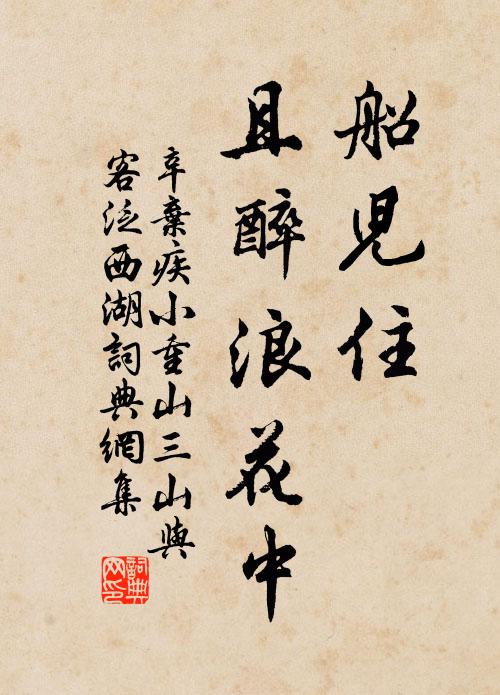 船兒住
且醉浪花中
辛棄疾小重山三山與
客泛西湖詞典網集
詞典
网印